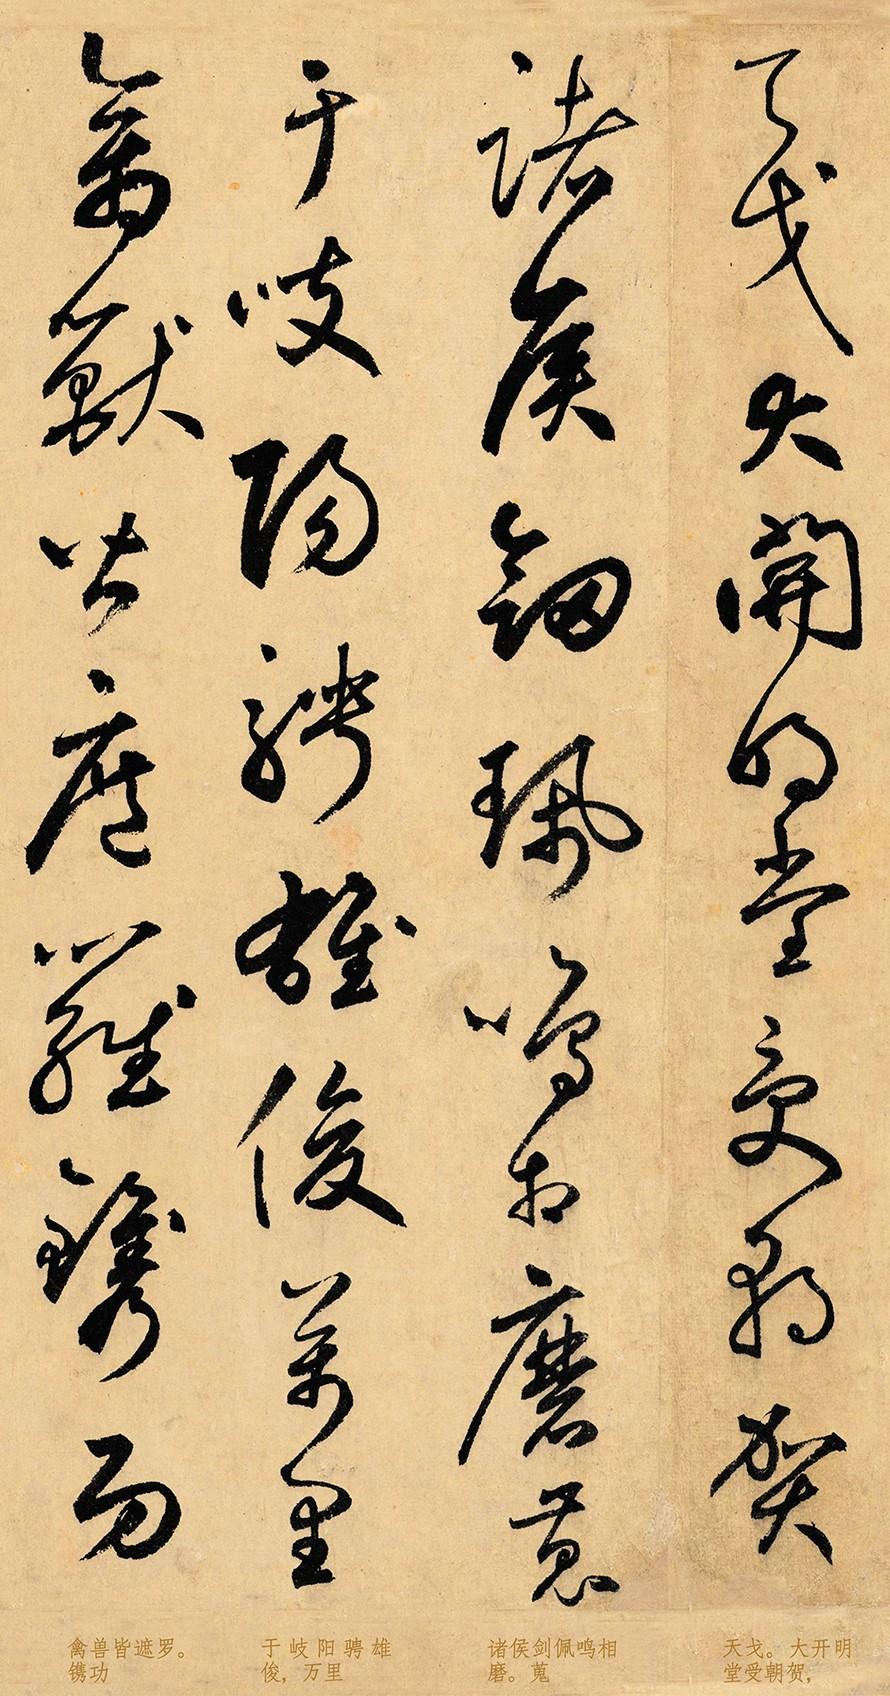 天戈大開明堂受朝賀
諸侯劍珮鳴相磨蒐
于岐陽騁雄俊萬里
禽獸皆遮羅鐫功
天戈。大开明
堂受朝贺，
诸侯剑佩鸣相
磨。蒐
于岐阳骋雄
俊，万里
禽兽皆遮罗。
镌功